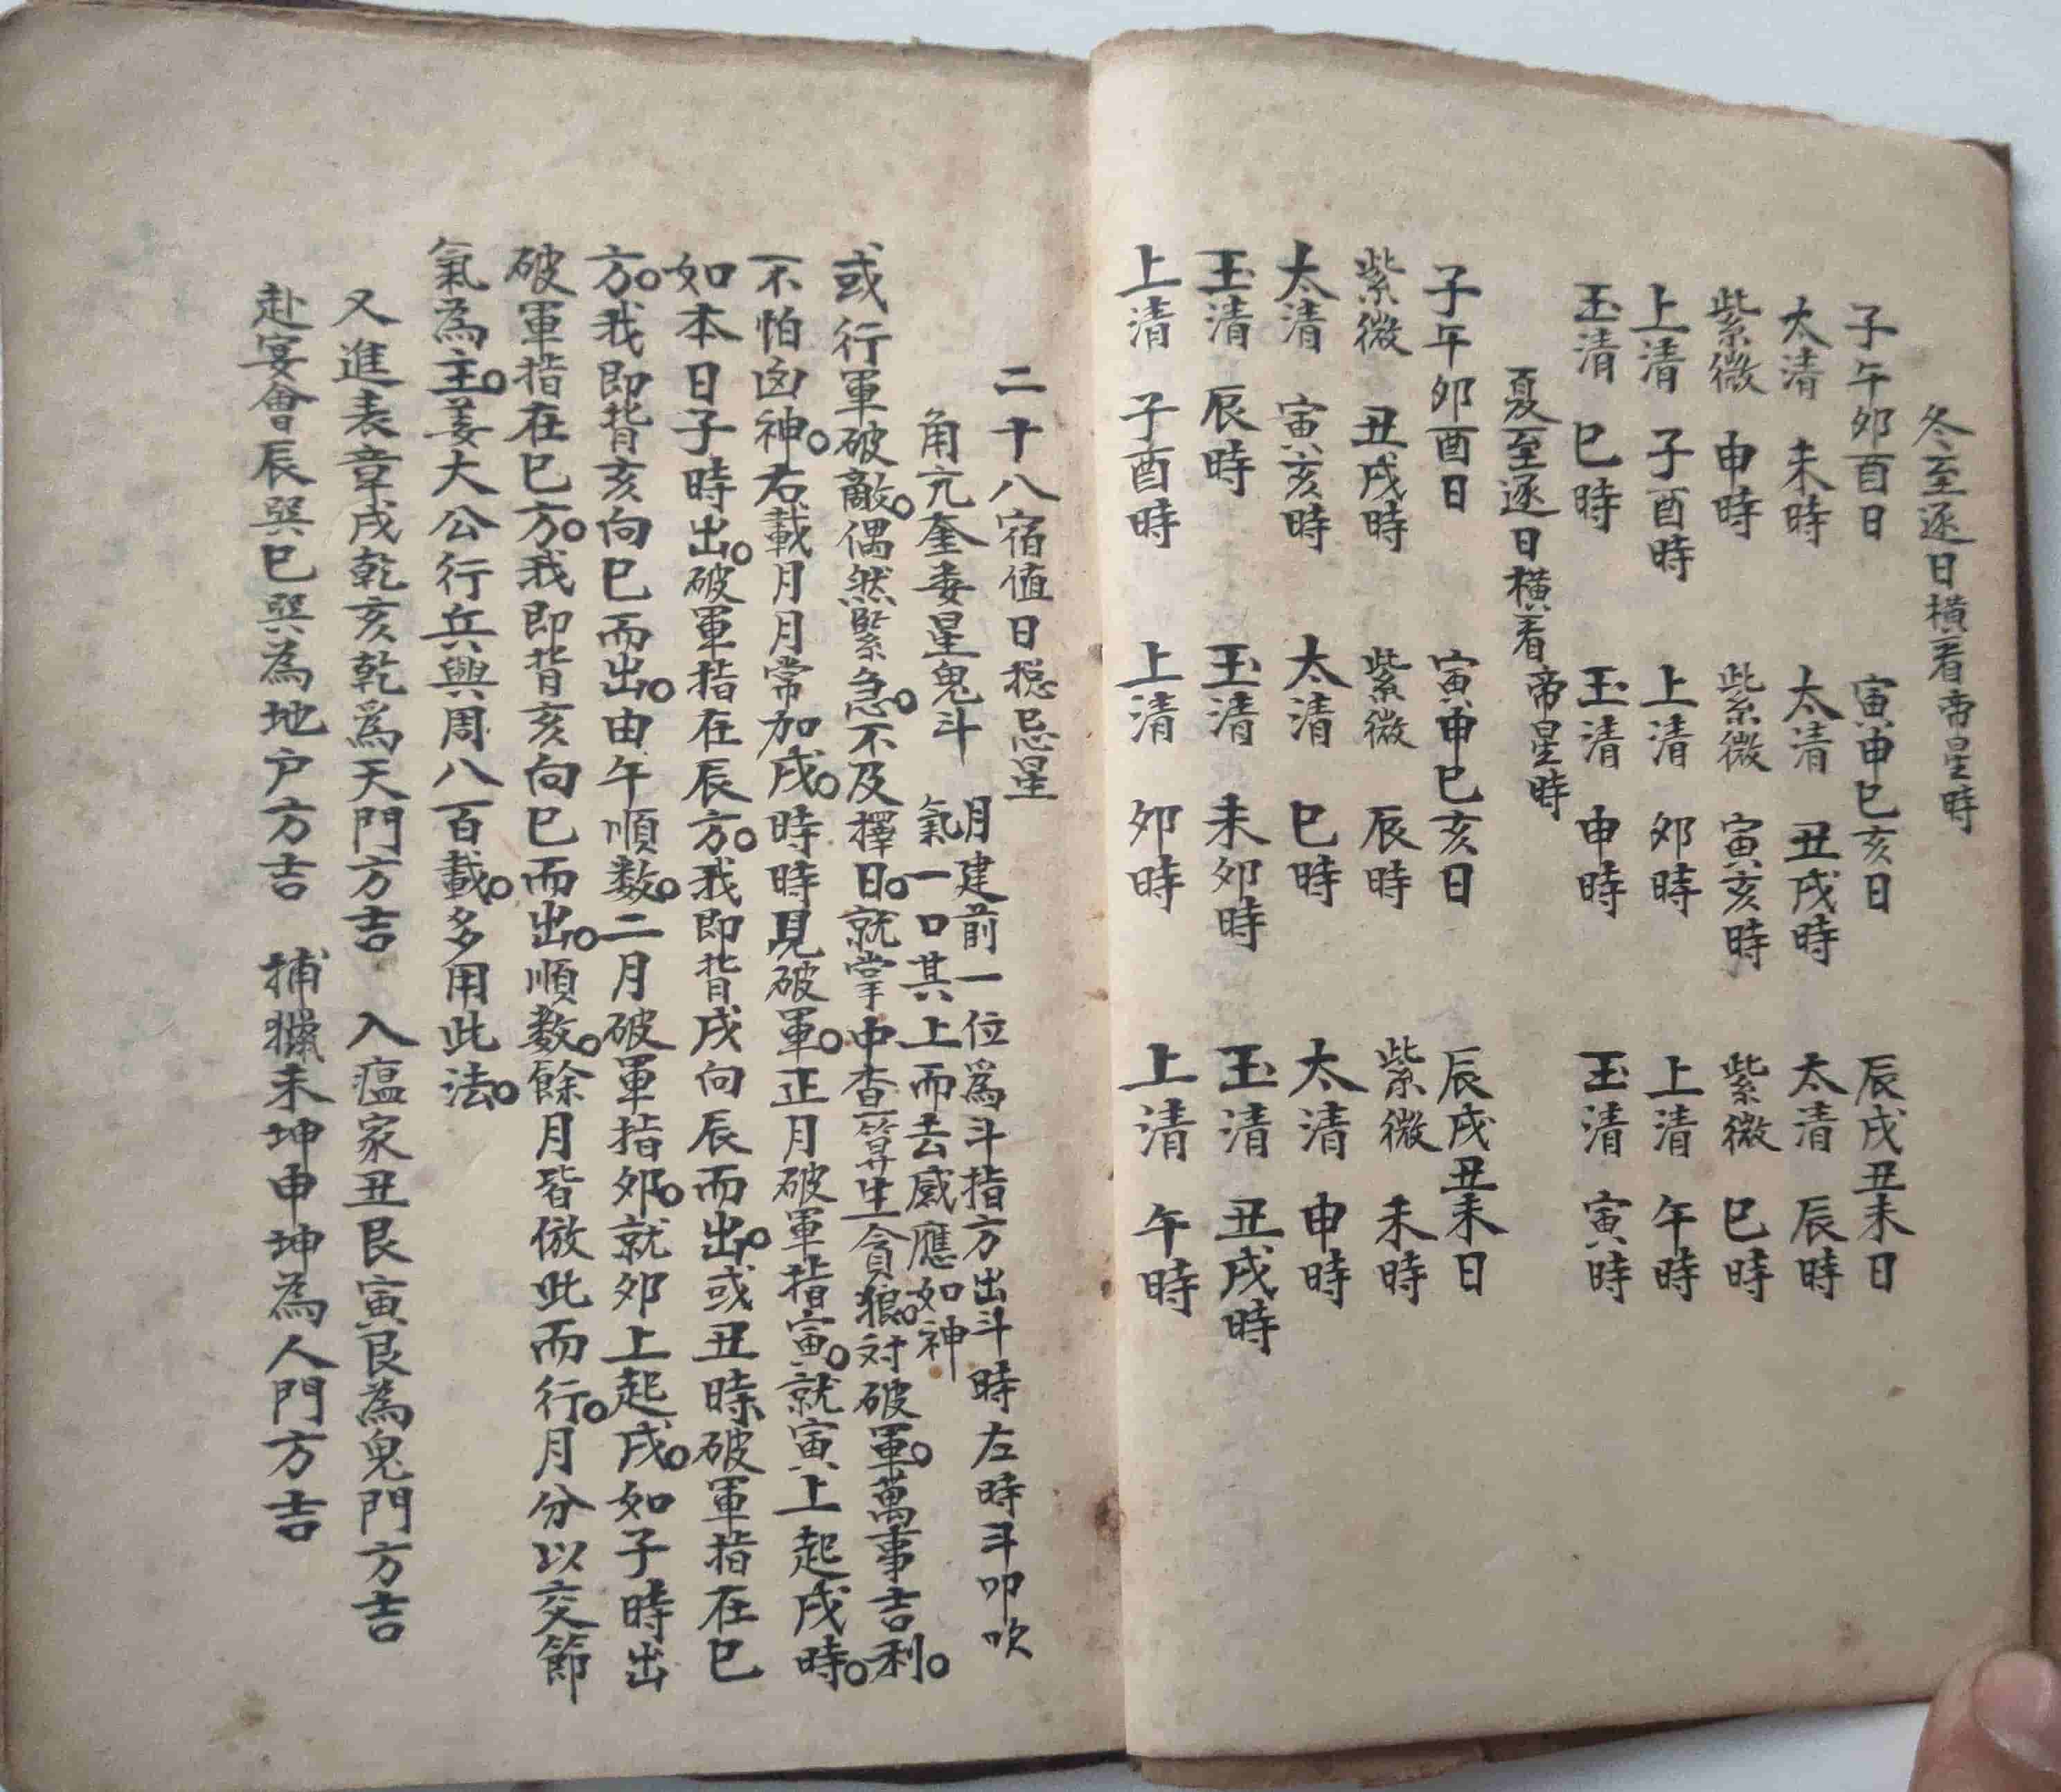 冬至逐日橫看帝星時
子午卯酉日 寅申巳亥日 辰戌丑未日
太清 未時 太清 丑戌時 太清 辰時
紫微 申時 紫微 寅亥時 紫微 巳時
上清 子酉時 上清 卯時 上清 午時
玉清 巳時 玉清 申時 玉清 寅時
夏至逐日橫看帝星時
子午卯酉日 寅申巳亥日 辰戌丑未日
紫微 丑戌時 紫微 辰時 紫微 未時
太清 寅亥時 太清 巳時 太清 申時
玉清 辰時 玉清 未卯時 玉清 丑戌時
上清 子酉時 上清 卯時 上清 午時
二十八宿值日捴忌星
角亢奎婁星鬼斗
月建前一位爲斗指方出斗時左時斗叩吹
氣一口其上而去感應如神
或行軍破敵。偶然緊急。不及擇日。就掌中查算生貪狼。対破軍。萬事吉利。
不怕凶神。右載月月常加戌。時時見破軍。正月破軍指寅。就寅上起戌時。
如本日子時出。破軍指在辰方。我即背戌向辰而出。或丑時破軍指在巳
方。我即背亥向巳而出。由午順数。二月破軍指卯。就卯上起戌。如子時出
破軍指在巳方。我即背亥向巳而出。順数。餘月皆倣此而行。月分以交節
氣為主。姜太公行兵興周八百載。多用此法。
又進表章戌乾亥乾爲天門方吉 入瘟家丑艮寅艮為鬼門方吉
赴宴會辰巽巳巽為地户方吉 捕獵未坤申坤為人門方吉